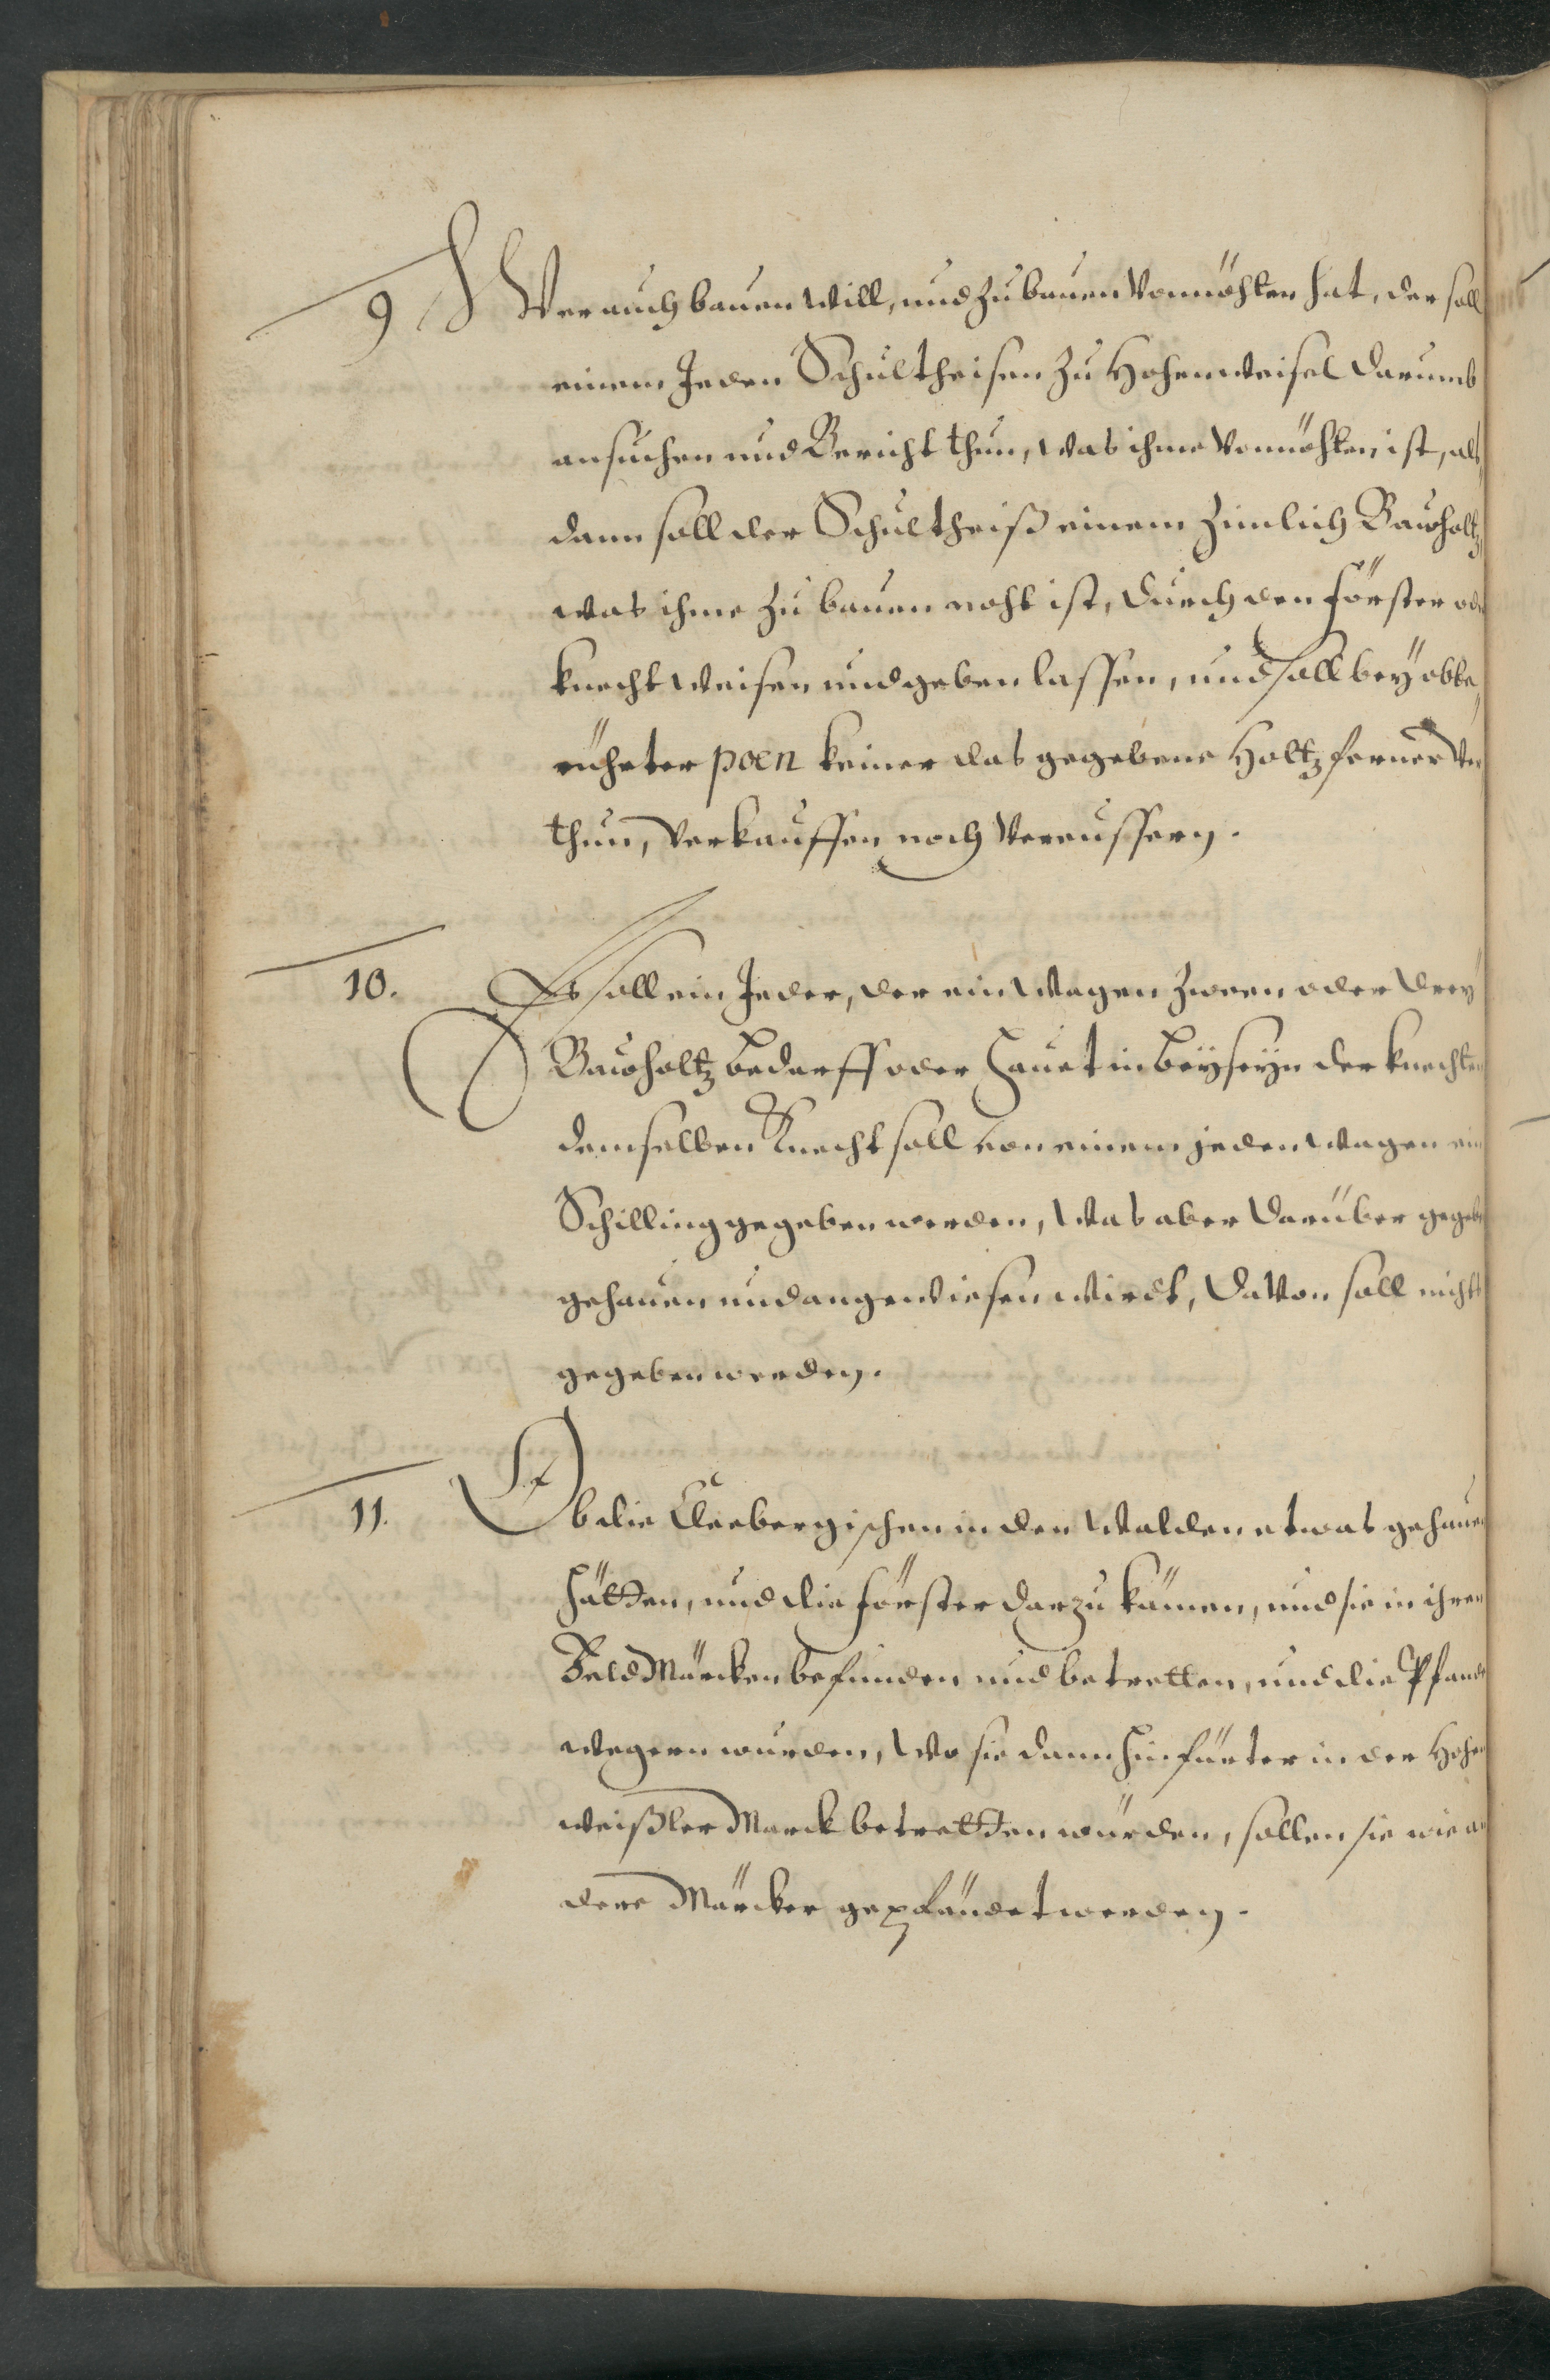 9 Wer auch bauen will, und zu bauen vonnöhten hat, der soll
einem Jeden Schultheisen zu Hohenweisel darumb
ansuchen und Bericht thun, was ihme vonnöhten ist, als,
dann soll der Schultheiß einem zimlich Bauholtz,
was ihme zu bauen noht ist, durch den förster oder
knecht weisen und geben lassen, und soll bey obbe,
rüheter poen keiner das gegebene Holtz ferner ver,
thun, verkauffen noch vereussern.
10. Es soll ein Jeder, der ein Wagen zween oder drey
Bauholtz bedarff oder hauet in beyseyn der knechten
demselben Knecht soll von einem jeden Wagen ein
Schilling gegeben werden, was aber darüber gegeben
gehauen und angewiesen wirdt, davon soll nichts
gegeben werden.
11. Ob die Cleebergischen in den Walden etwas gehauen
hätten, und die förster darzu kämen, und sie in ihren
Feld Märcken befunden und betretten, und die Pfandt
wegern wurden, wo sie dann hinfürter in der Hohen
weißler Marck betretten würden, sollen sie wie an
dere Märcker gepfändet werden.